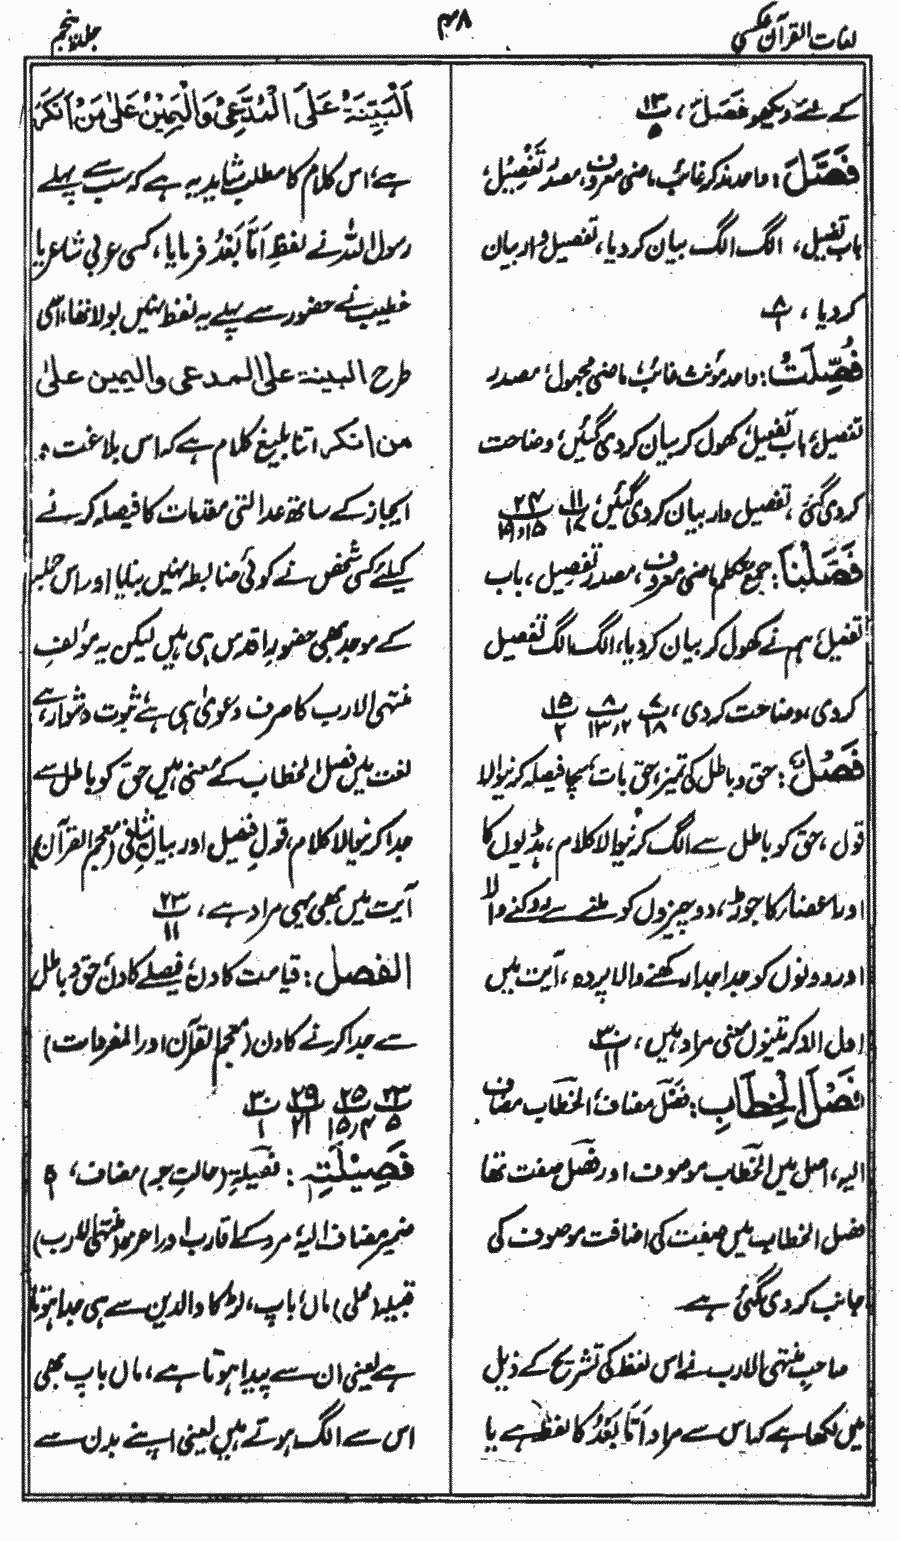 لغات القرآن عکسی
۴۸
جلد پنجم
کے لئے دیکھو فَصَلَ، ۱۳ ۵
فَصَّلَ: واحد مذکر غائب، ماضی معروف، مصدر تَفْصِیْل،
باب تفعیل، الگ الگ بیان کر دیا، تفصیل وار بیان
کر دیا، ۸ ۱
فُصِّلَتْ: واحد مؤنث غائب، ماضی مجہول، مصدر
تفصیل، باب تفعیل، کھول کر بیان کر دی گئیں، وضاحت
کر دی گئی، تفصیل وار بیان کر دی گئیں، ۱۱ ۱۷ ۲۴ ۱۵ و ۱۹
فَصَّلْنَا: جمع متکلم ماضی معروف، مصدر تفصیل، باب
تفعیل، ہم نے کھول کر بیان کر دیا، الگ الگ تفصیل
کر دی، وضاحت کر دی، ۷ ۱۸ ۸ ۲، ۱۳ ۱۵ ۲
فَصْلٌ: حق و باطل کی تمیز، حق بات، سچا فیصلہ کرنیوالا
قول، حق کو باطل سے الگ کرنیوالا کلام، ہڈیوں کا
اور اعضار کا جوڑ، دو چیزوں کو ملنے سے روکنے والا
اور دونوں کو جدا جدا رکھنے والا پردہ، آیت میں
اول الذکر تینوں معنی مراد ہیں، ۳۰ ۱۱
فَصْلَ الْخِطَابِ: فَصْلَ مضاف، الخطاب مضاف
الیہ، اصل میں الخطاب موصوف اور فصل صفت تھا
فصل الخطاب میں صفت کی اضافت موصوف کی
جانب کر دی گئی ہے
صاحبِ منتہی الارب نے اس لفظ کی تشریح کے ذیل
میں لکھا ہے کہ اس سے مراد اَمَّا بَعْدُ کا لفظ ہے یا
اَلْبَیِّنَۃُ عَلَی الْمُدَّعِیْ وَالْیَمِیْنُ عَلٰی مَنْ اَنْکَرَ
ہے، اس کلام کا مطلب شاید یہ ہے کہ سب سے پہلے
رسول اللہ نے لفظ اَمَّا بَعْدُ فرمایا، کسی عربی شاعر یا
خطیب نے حضور سے پہلے یہ لفظ نہیں بولا تھا، اسی
طرح البینۃ علی المدعی والیمین علیٰ
من انکر اتنا بلیغ کلام ہے کہ اس بلاغت و
ایجاز کے ساتھ عدالتی مقدمات کا فیصلہ کرنے
کیلئے کسی شخص نے کوئی ضابطہ نہیں بتایا اور اس جملہ
کے موجد بھی حضور اقدس ہی ہیں لیکن یہ مؤلف
منتہی الارب کا صرف دعویٰ ہی ہے، ثبوت دشوار ہے،
لغت میں فصل الخطاب کے معنی ہیں حق کو باطل سے
جدا کرنیوالا کلام، قول فیصل اور بیان شافی (معجم القرآن)
آیت میں بھی یہی مراد ہے، ۲۳ ۱۱
الفصل: قیامت کا دن، فیصلے کا دن، حق و باطل
سے جدا کرنے کا دن (معجم القرآن اور المفردات)
۲۳ ۵ ۲۵ ۴، ۱۵ ۲۹ ۲۱ ۳۰ ۱
فَصِیْلَتِہٖ: فصیلۃ (حالتِ جر) مضاف، ہ
ضمیر مضاف الیہ، مرد کے اقارب اور اعزہ (منتہی الارب)
قبیلہ (محلی) ماں، باپ، لڑکا والدین سے ہی جدا ہوتا
ہے یعنی ان سے پیدا ہوتا ہے، ماں باپ بھی
اس سے الگ ہوتے ہیں یعنی اپنے بدن سے